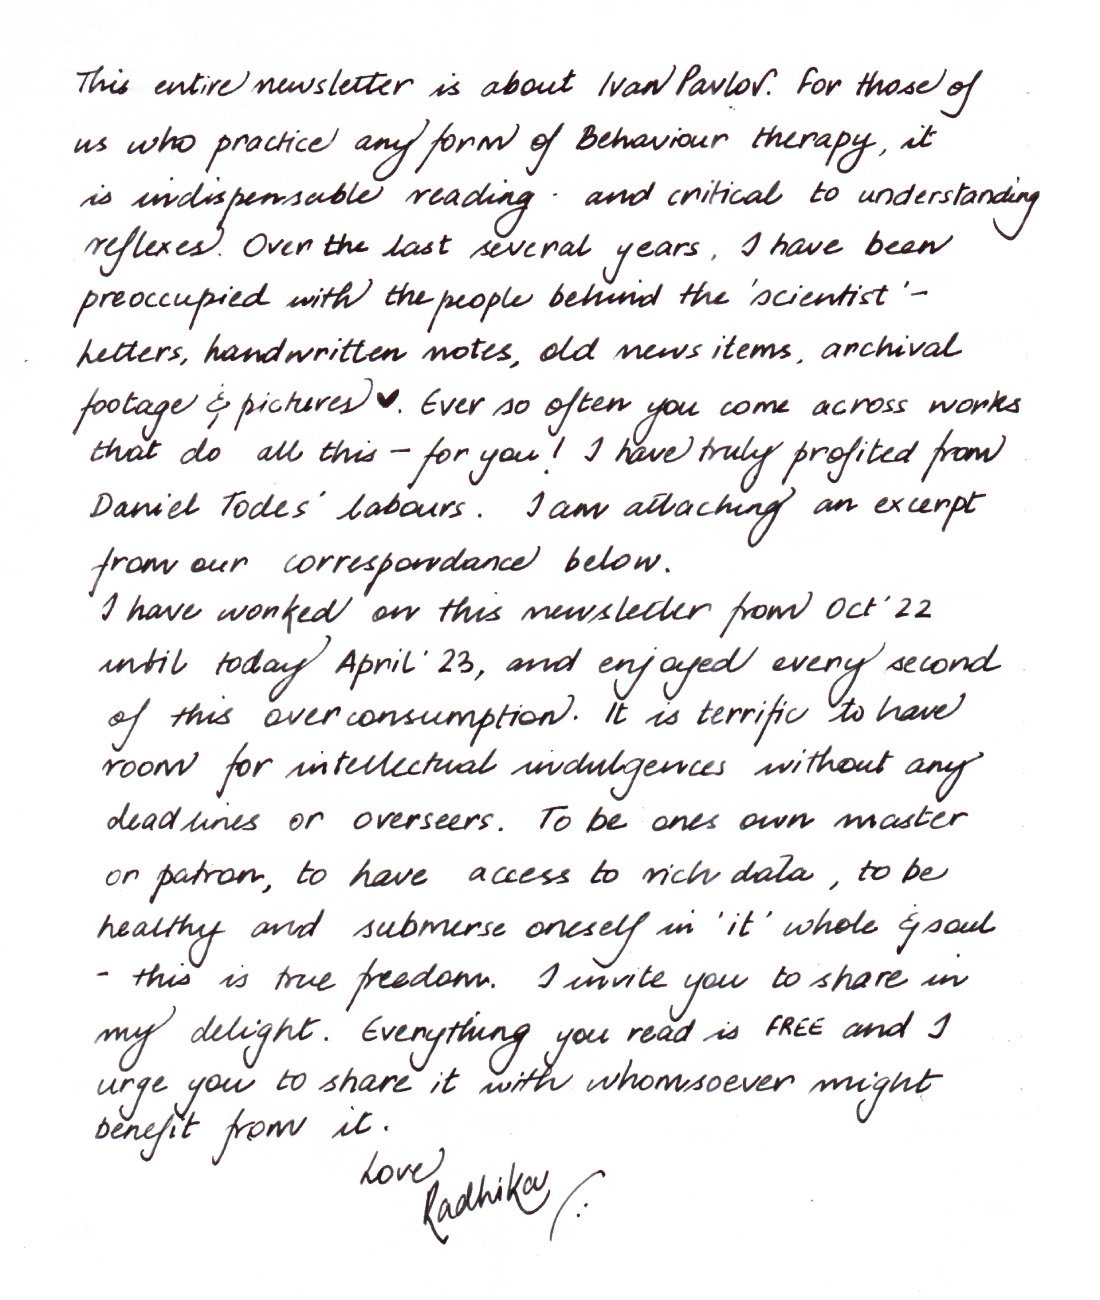 This entire newsletter is about Ivan Pavlov. For those of
us who practice any form of Behaviour therapy, it
is indispensable reading - and critical to understanding
reflexes. Over the last several years, I have been
preoccupied with the people behind the 'scientist' -
Letters, handwritten notes, old news items, archival
footage & pictures ♥. Ever so often you come across works
that do all this - for you! I have truly profited from
Daniel Todes' labours. I am attaching an excerpt
from our correspondance below.
I have worked on this newsletter from Oct '22
until today April '23, and enjoyed every second
of this overconsumption. It is terrific to have
room for intellectual indulgences without any
deadlines or overseers. To be ones own master
or patron, to have access to rich data, to be
healthy and submerse oneself in 'it' whole & soul
- this is true freedom. I invite you to share in
my delight. Everything you read is FREE and I
urge you to share it with whomsoever might
benefit from it.
Love
Radhika (: